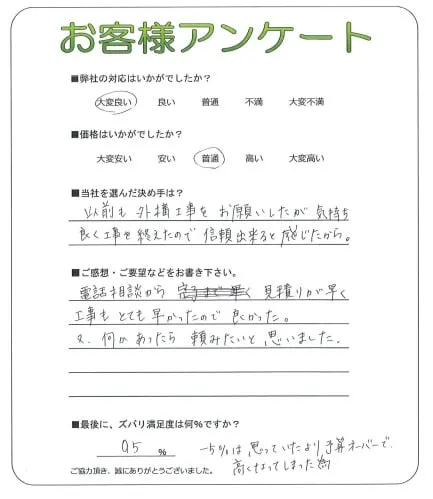 お客様アンケート
■弊社の対応はいかがでしたか？
大変良い 良い 普通 不満 大変不満
■価格はいかがでしたか？
大変安い 安い 普通 高い 大変高い
■当社を選んだ決め手は？
以前も外構工事をお願いしたが気持ち
良く工事を終えたので信頼出来ると感じたから。
■ご感想・ご要望などをお書き下さい。
電話相談から 見積りが早く
工事もとても早かったので良かった。
又、何かあったら頼みたいと思いました。
■最後に、ズバリ満足度は何％ですか？
95 % -5%は思っていたより予算オーバーで、
高くなってしまった為
ご協力頂き、誠にありがとうございました。